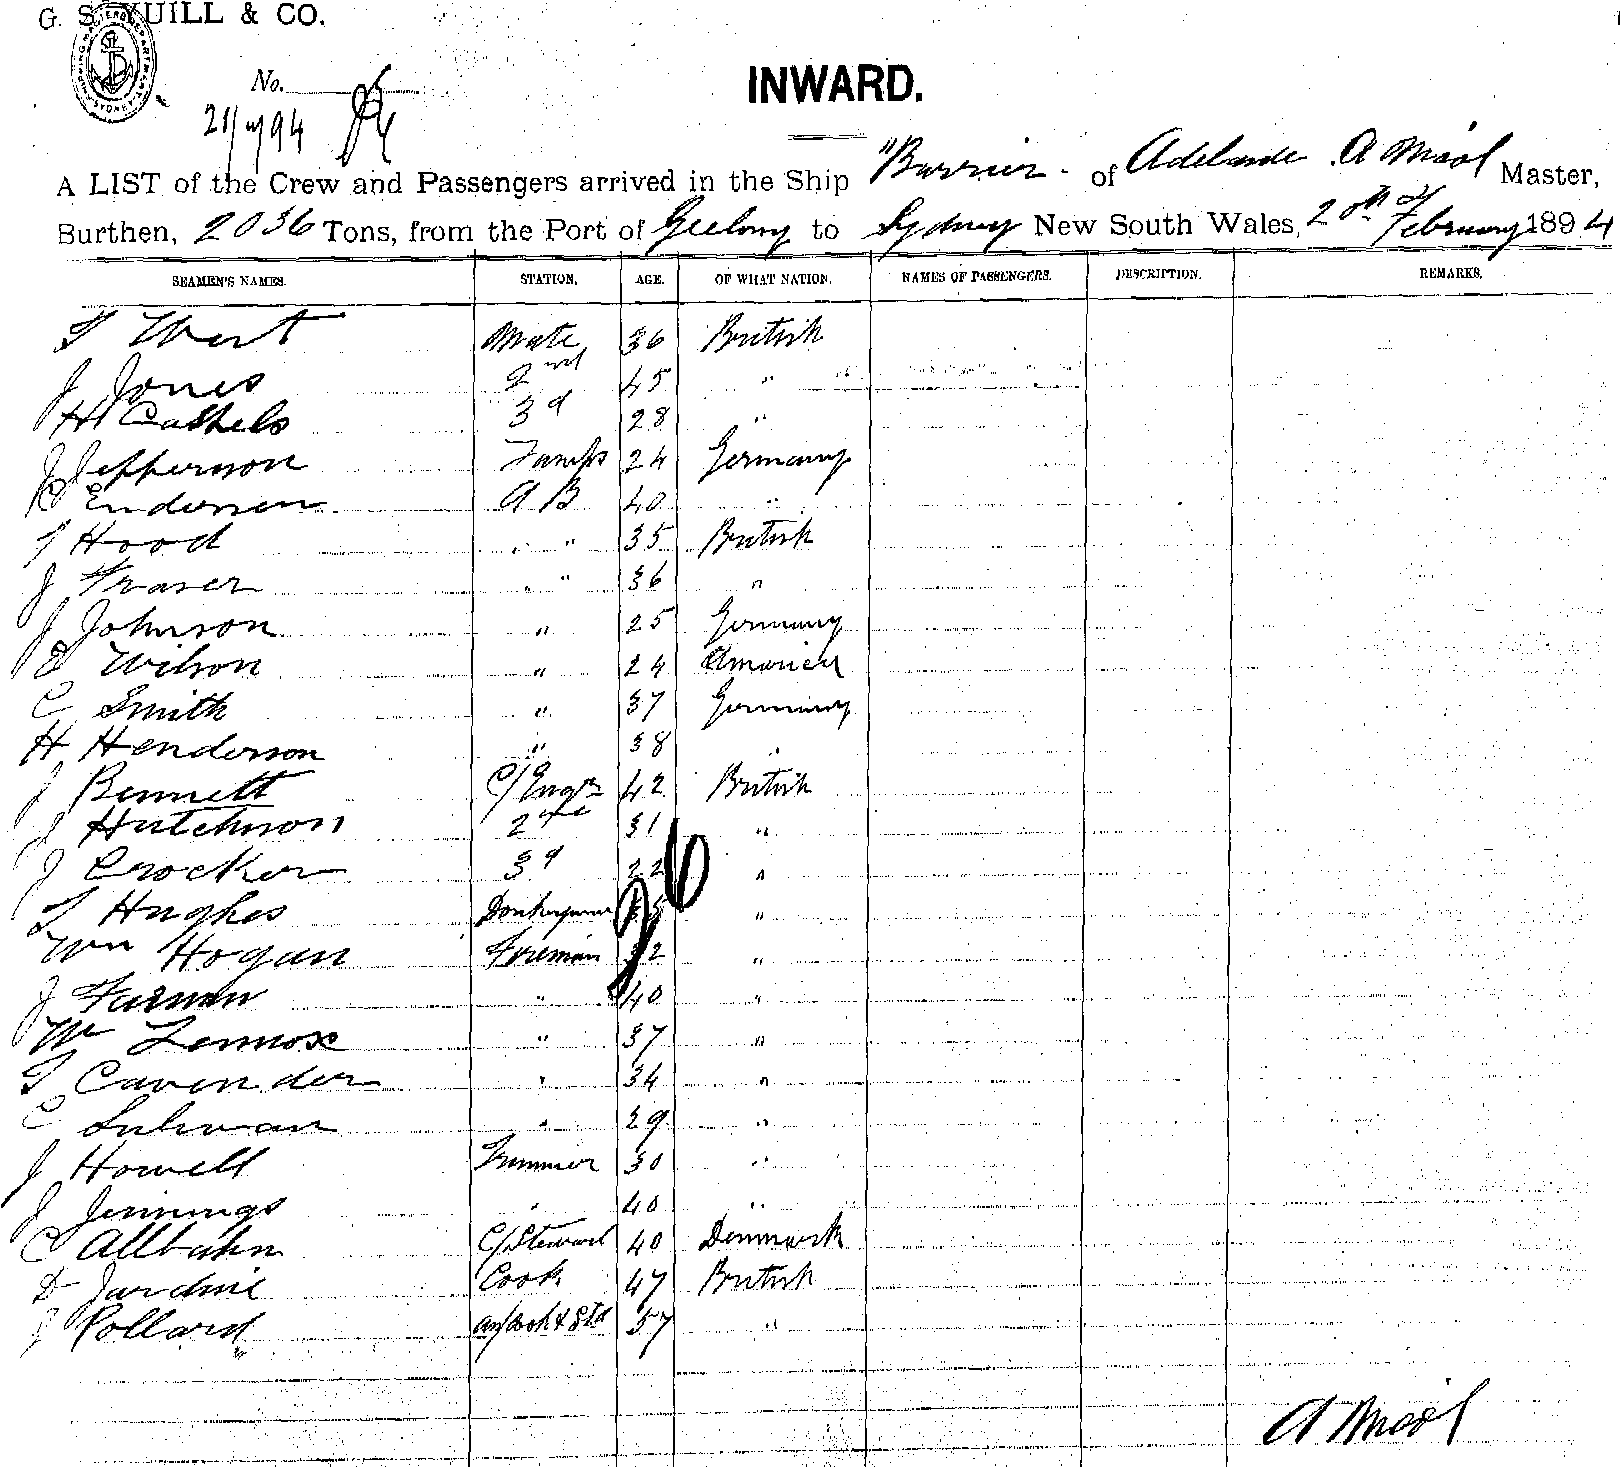 G. S. YUILL & CO.
No.
INWARD.
A LIST of the Crew and Passengers arrived in the Ship "Barrier" of Adelaide A Master,
Burthen, 2036 Tons, from the Port of Geelong to Sydney New South Wales, 20th of February 1894
SEAMEN'S NAMES. STATION. AGE. OF WHAT NATION. NAMES OF PASSENGERS. DESCRIPTION. REMARKS.
Mate 36 British
J Jones 2nd 45 "
H Cashels 3d 28 "
J Jefferson Lamps 24 Germany
Endersen A B 40 "
T Hood " " 35 British
J Fraser " " 36 "
J Johnson " 25 Germany
Wilson " 24 America
C Smith " 37 Germany
H Henderson " 38 "
J Bennett C/Engr 42 British
J Hutchison 2nd 31 "
J Crocker 3d 22 "
T Hughes Donkeyman "
Wm Hogan Fireman 32 "
J Farnan " 40 "
Wm Lennox " 37 "
T Cavender " 34 "
C Sulivan " 29 "
J Howell Trimmer 30 "
J Jennings " 40 "
C Allbahn C/Steward 40 Denmark
D Jardine Cook 47 British
J Pollard as/Cook & Std 57 "
A